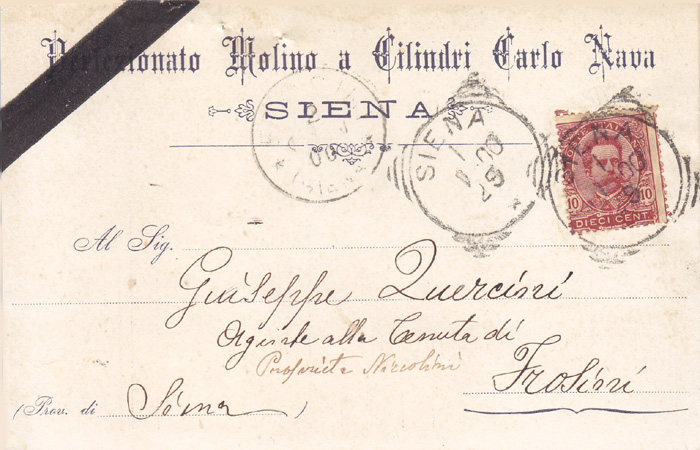 Perfesionato Molino a Cilindri Carlo Nava
SIENA
SIENA
SIENA
10 10
DIECI CENT.
Al Sig.
Giuseppe Quercini
Agente alla Tenuta di
Proprietà Niccolini
Frosini
(Prov. di Siena)